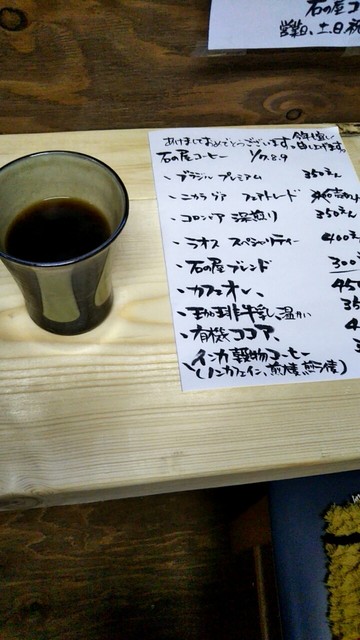 石の屋コ
営業日、土、日、祝
あけましておめでとうございます。
石の屋コーヒー 1/7.8.9
・ブラジル プレミアム 350えん
・ニカラグア フェアトレード
・コロンビア 深煎り 350えん
・ラオス スペシャルティー 400
・石の屋ブレンド 300
・カフェオレ、 45
・珈琲牛乳、温かい 35
・有機ココア、
・インカ穀物コーヒー
(ノンカフェイン、